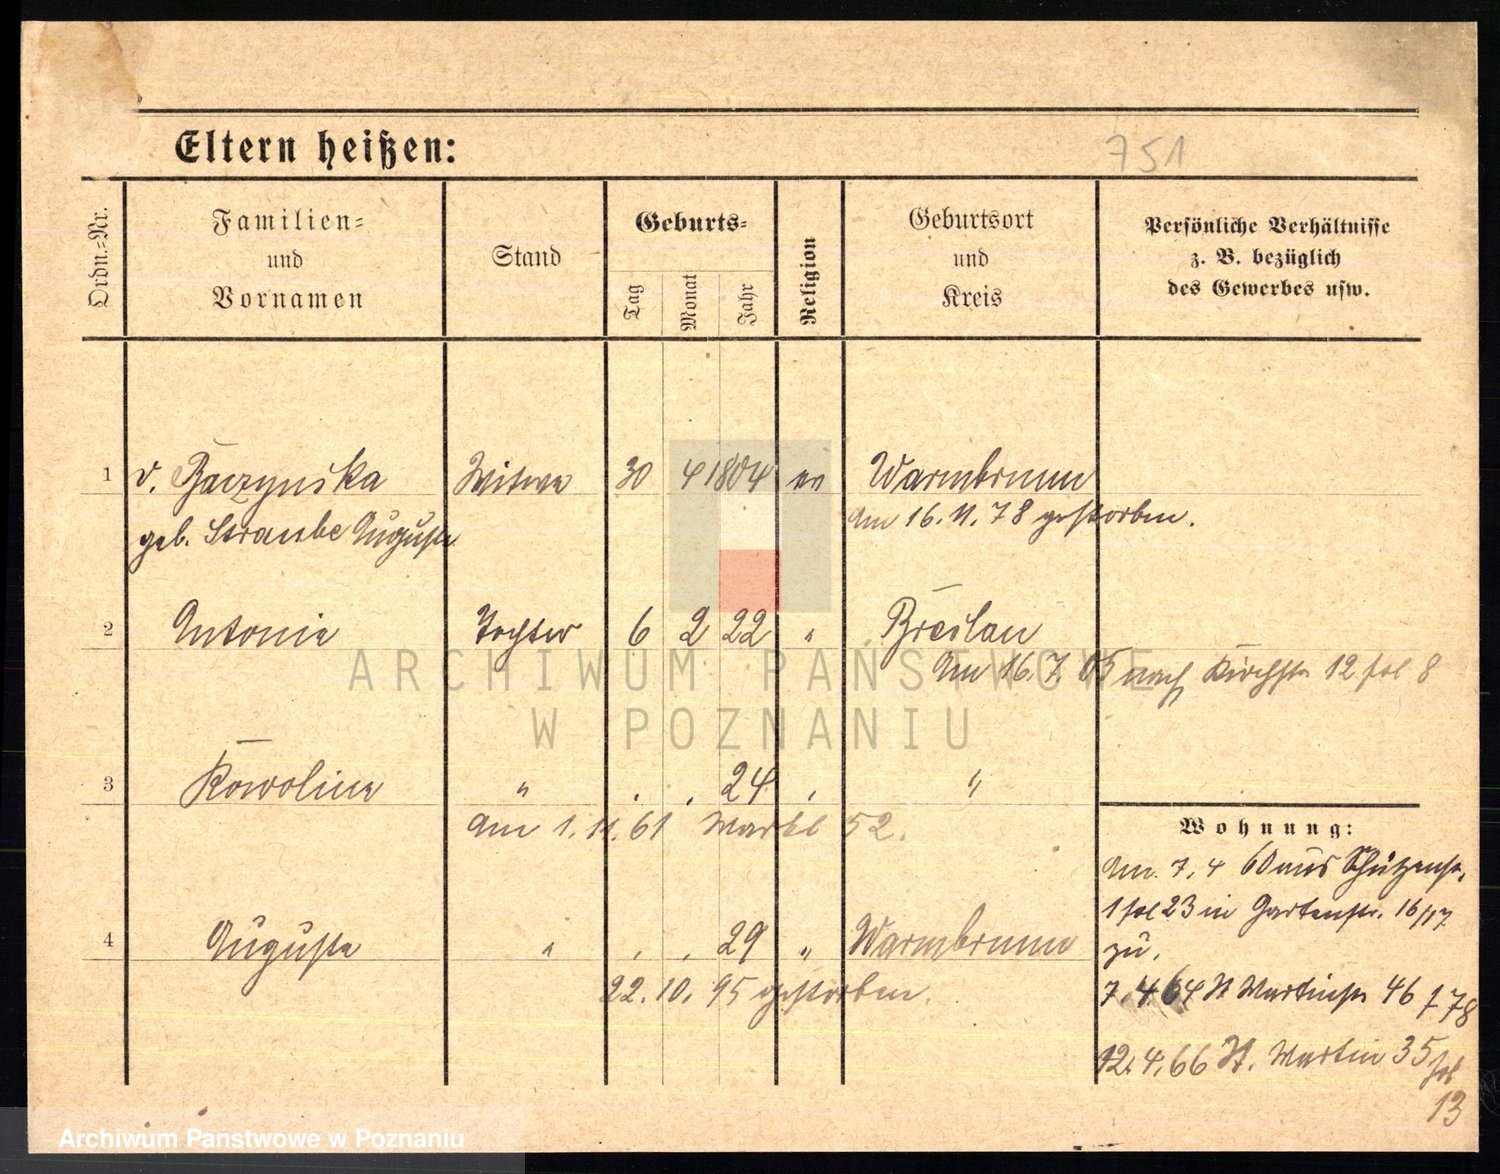 Eltern heißen:
751
Ordn.=Nr.
Familien=
und
Vornamen
Stand
Geburts=
Tag
Monat
Jahr
Religion
Geburtsort
und
Kreis
Persönliche Verhältnisse
z. B. bezüglich
des Gewerbes usw.
1 v. Baczynska Witwe 30 4 1804 ev Warmbrunn
geb. Straube Auguste am 16. 11. 78 gestorben.
2 Antonie Tochter 6 2 22 " Breslau
Am 16. 7. 05 nach Kirchstr 12 fol 8
3 Karoline " . . 24 . "
am 1. 11. 61 Markt 52.
4 Auguste " . . 29 " Warmbrunn
22. 10. 95 gestorben.
Wohnung:
Am. 7. 4 60 aus Schützenstr.
1 fol 23 in Gartenstr. 16/17
zu.
7. 4 64 St Martinstr 46 f 78
12. 4. 66 St. Martin 35 fol
13
ARCHIWUM PAŃSTWOWE
W POZNANIU
Archiwum Państwowe w Poznaniu